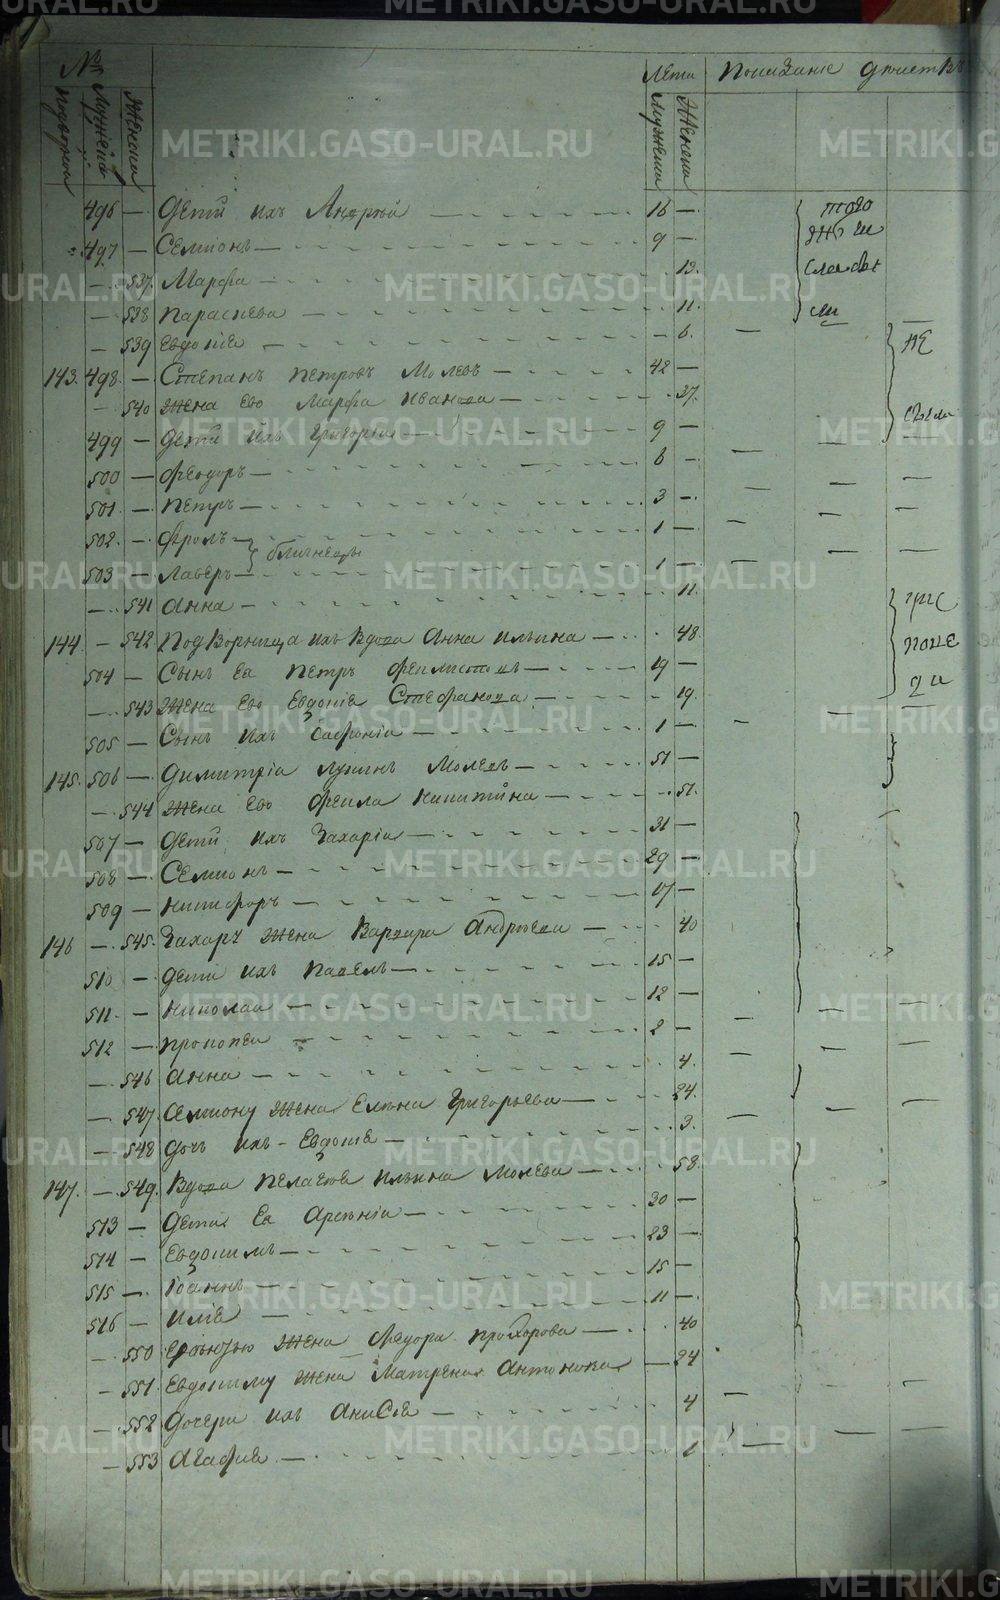 №
Лета
Показание действ
подворная
Мужеска
Женска
мужеска
Женска
496 — Дети ихъ Андрей — 16 — того
497 — Семионъ — 9 — же и
— 537 Марфа — 13.
— 538 Параскева — 11.
— 539 Евдокiя — 6. — НЕ
143. 498. — Степанъ Петровъ Молевъ — 42 —
— 540 Жена Ево Марфа Иванова — 37.
499 — Дети ихъ Григорiи — 9 —
500 — Феодоръ — 6 —
501 — Петръ — 3 —
502. — Фролъ — 1 —
близнецы
503 — Лаверъ — 1 —
— 541 Анна — 11.
144 — 542 Подворница ихъ Вдова Анна Ильина — 48
504 — Сынъ Ея Петръ Феклистовъ — 19 —
— 543 Жена Ево Евдокiя Стефанова — 19.
505 — Сынъ ихъ — 1 —
145. 506 — Димитрiи Лукинъ Молевъ — 51 —
— 544 Жена Ево Фекла Никитина — 51.
507 — Дети ихъ Захарiи — 31 —
508 — Семионъ — 29 —
509 — Никифоръ — 17 —
146 — 545. Захару Жена Варвара Андреева — 40
510 — Дети ихъ Павелъ — 15 —
511. — Николаи — 12 —
512 — Прокопеи — 2 —
— 546 Анна — 4.
— 547 Семиону Жена Елена Григорьева — 24.
— 548 Дочь ихъ Евдокiя — 3.
147. — 549. Вдова Пелагея Ильина Молева — 58.
513 — Дети Ея Арсенiи — 30 —
514 — Евдокимъ — 23 —
515 — Iоаннъ — 15 —
516 — Илiя — 11 —
— 550 Жена Федора Прохорова — 40
— 551. Евдокиму Жена Матрена Антонова — 24
— 552 Дочери ихъ Анисiя — 4
— 553 Агафiя — 1
METRIKI.GASO-URAL.RU